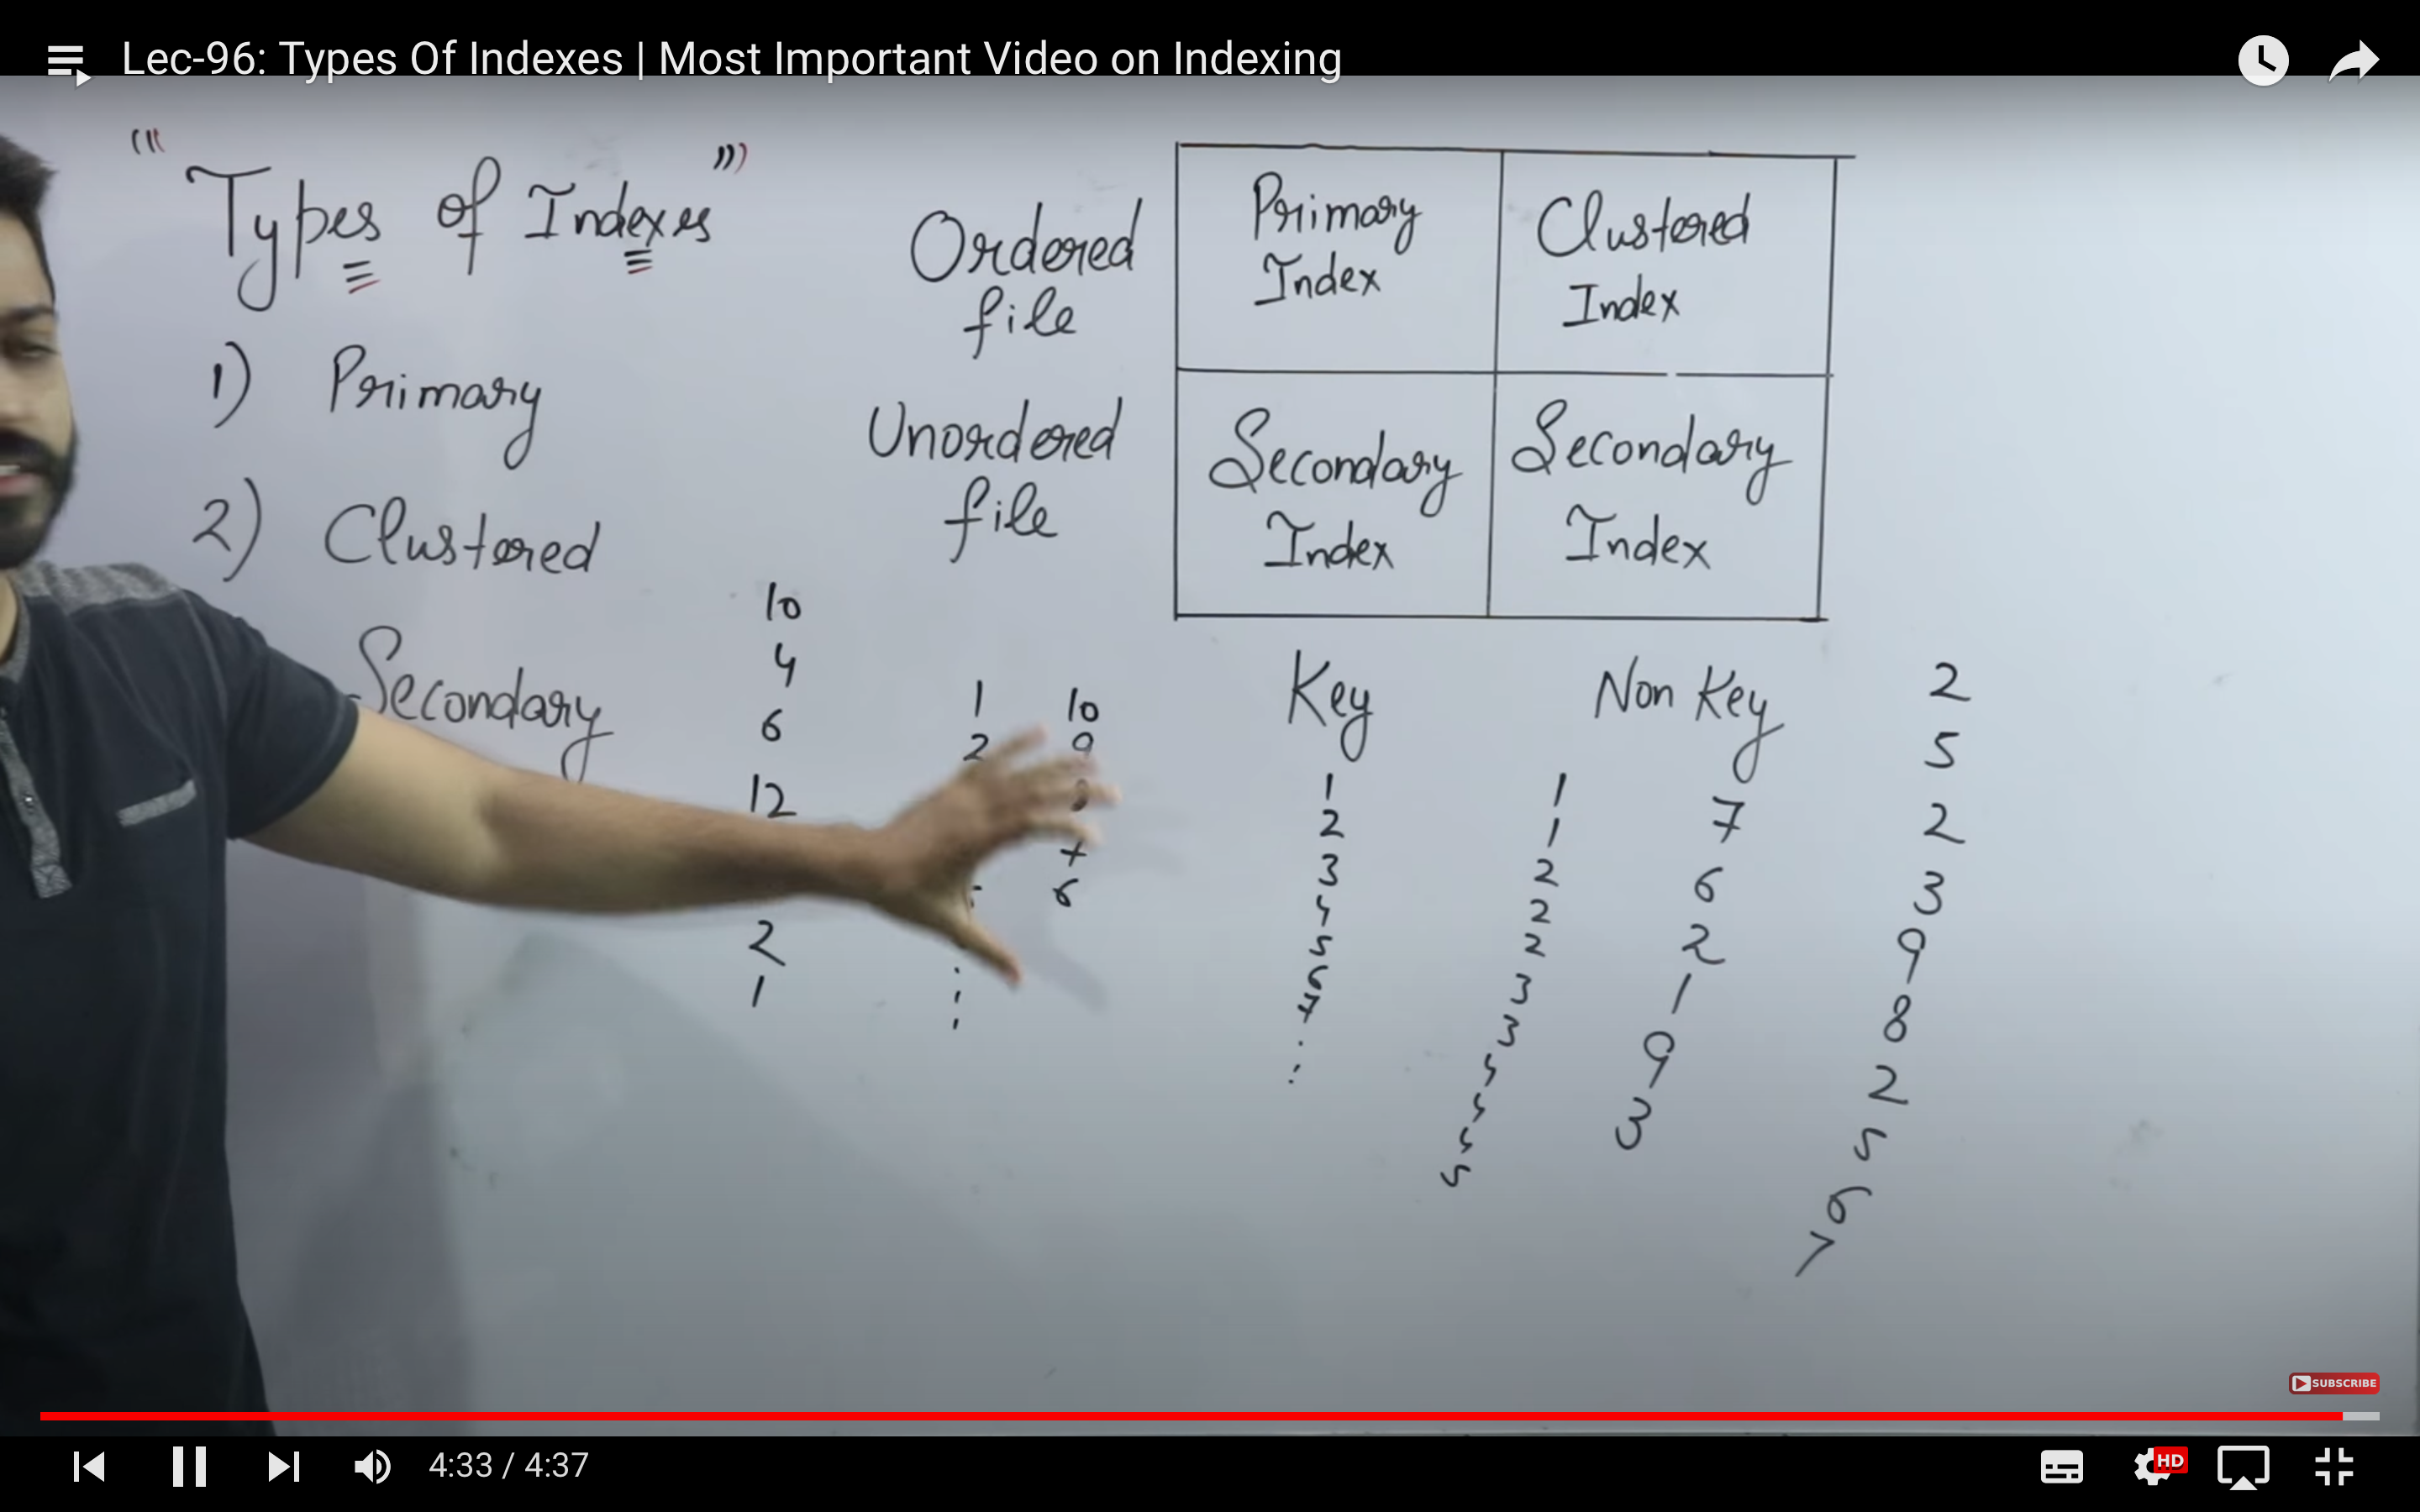 Lec-96: Types Of Indexes | Most Important Video on Indexing
"Types of Indexes"
1) Primary
2) Clustered
Secondary
Ordered
file
Unordered
file
Primary
Index
Clustered
Index
Secondary
Index
Secondary
Index
Key
Non Key
10
4
6
12
2
1
1
2
10
9
6
1
2
3
4
5
6
7
1
1
2
2
2
3
3
4
4
4
5
7
6
2
1
9
3
2
5
2
3
9
8
2
5
6
7
SUBSCRIBE
4:33 / 4:37
HD